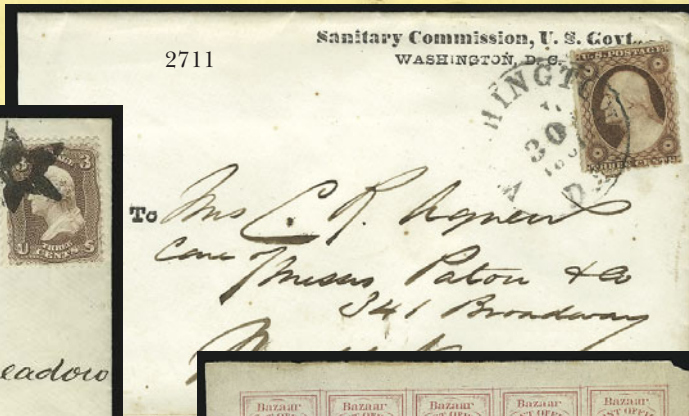 2711
Sanitary Commission, U. S. Govt.,
WASHINGTON, D. C.
U.S. POSTAGE
THREE CENTS
HINGTO
30
D
To Mrs C. R. Agnew
Care Messrs Paton & Co
341 Broadway
3
THREE
CENTS
U S
eadow
Bazaar Bazaar Bazaar Bazaar Bazaar